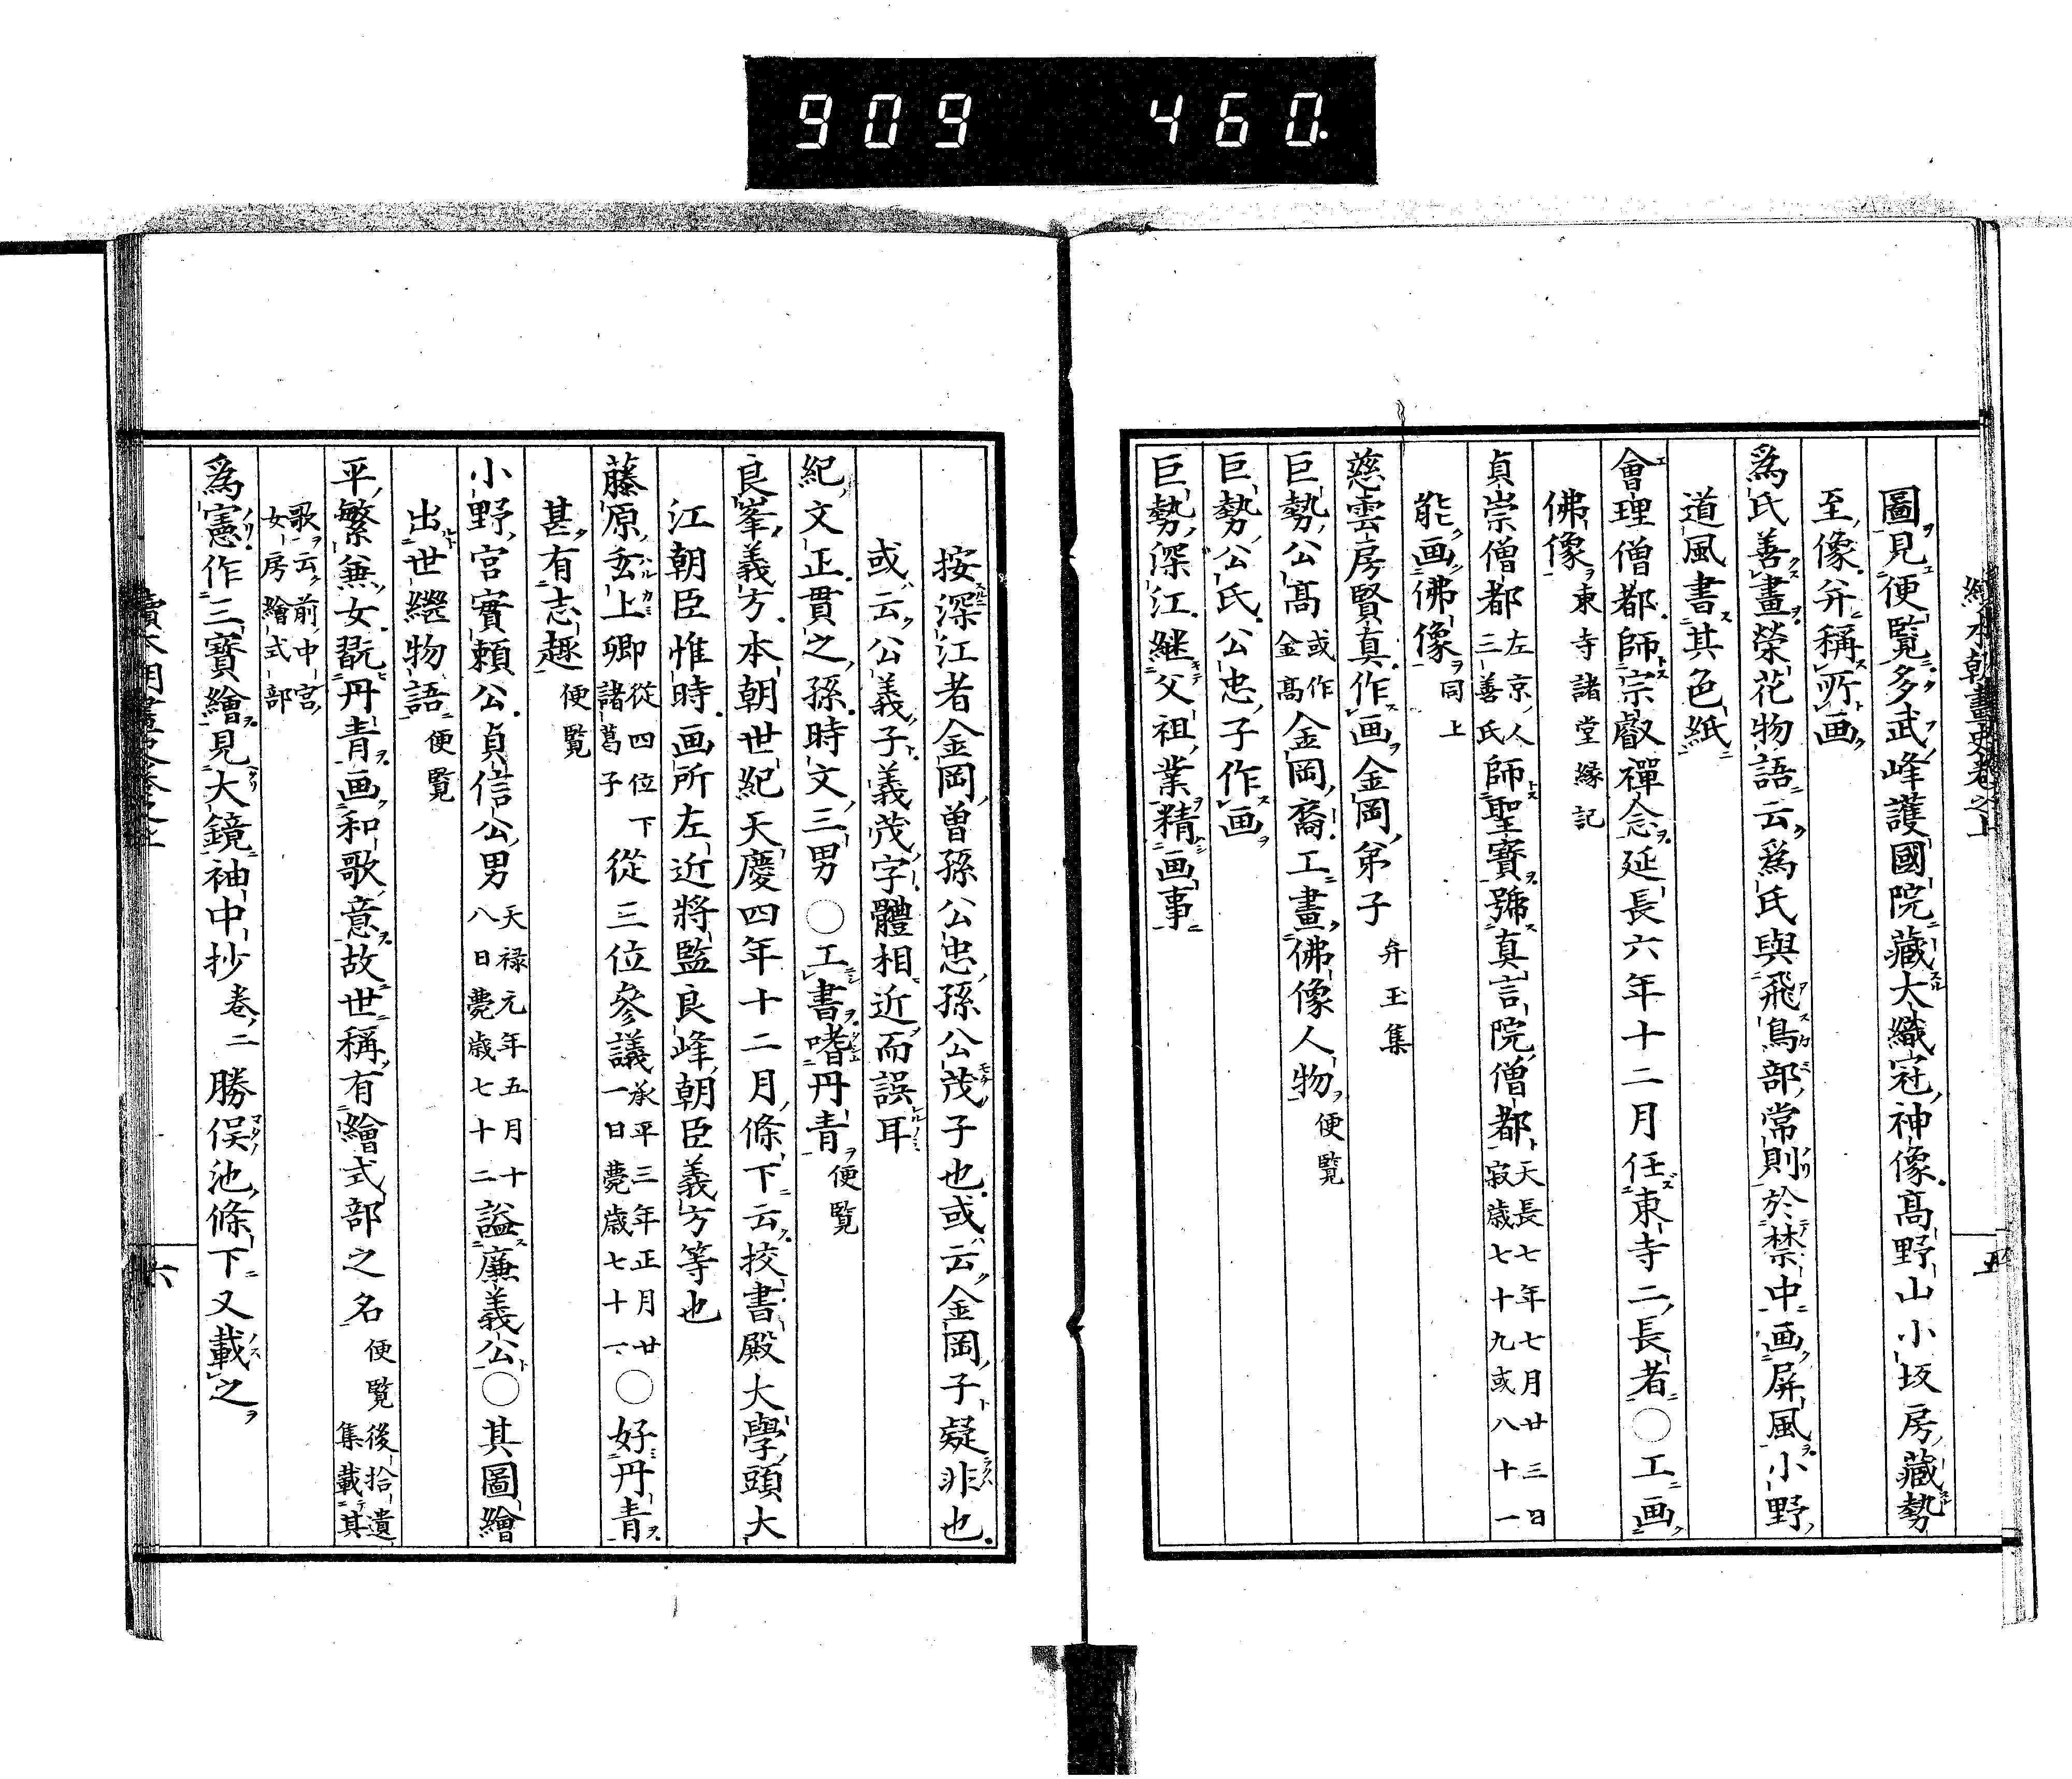 909 460.
續本朝畫史卷之上
五
圖見便覽多武峰護國院藏大織冠神像髙野山小坂房藏勢
至像并稱所画
爲氏善畫榮花物語云爲氏與飛鳥部常則於禁中画屏風小野
道風書其色紙
會理僧都師宗叡禪念延長六年十二月任東寺二長者○工画
佛像東寺諸堂縁記
貞崇僧都左京人三善氏師聖寳號真言院僧都天長七年七月廿三日寂歳七十九或八十一
能画佛像同上
慈雲房賢真作画金岡弟子弁玉集
巨勢公髙或作金髙金岡裔工畫佛像人物便覧
巨勢公氏公忠子作画
巨勢深江継父祖業精画事
按深江者金岡曽孫公忠孫公茂子也或云金岡子疑非也
或云公義子義茂字體相近而誤耳
紀文正貫之孫時文三男○工書嗜丹青便覧
良峯義方本朝世紀天慶四年十二月條下云挍書殿大學頭大
江朝臣惟時画所左近將監良峰朝臣義方等也
藤原玄上卿從四位下諸葛子從三位參議承平三年正月廿一日薨歳七十一○好丹青
甚有志趣便覧
小野宮實頼公貞信公男天禄元年五月十八日薨歳七十二謚廉義公○其圖繪
出世繼物語便覧
平繁兼女翫丹青画和歌意故世稱有繪式部之名便覧後拾遺集載其
歌云前中宮女房繪式部
爲憲作三寳繪見大鏡袖中抄卷二勝俣池條下又載之
續本朝畫史卷之上
六